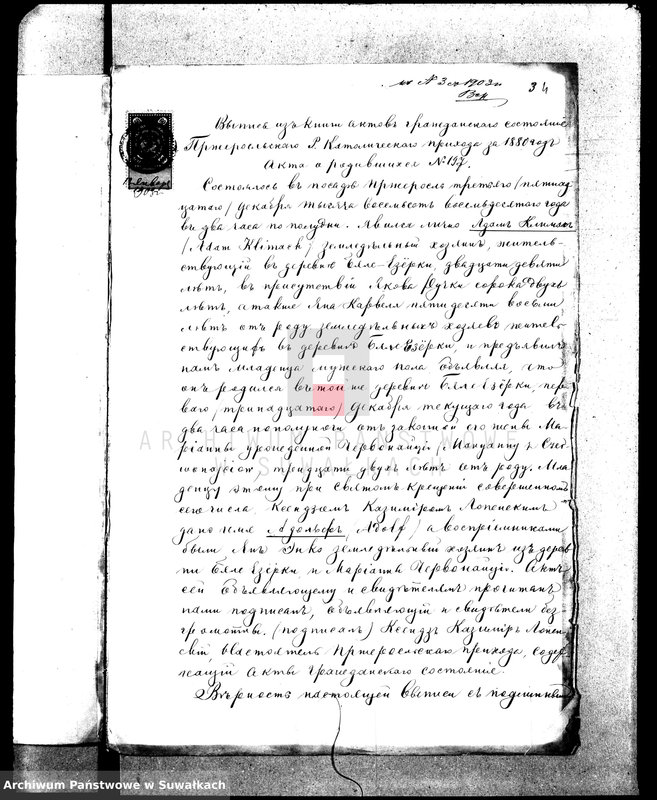 къ № 3 ех 1903 г.
34
Января
1903 г.
Выпись изъ книги актовъ гражданскаго состоянiя
Пржеросльскаго Р. Католическаго прихода за 1880 годъ
Акта о родившихся № 197.
Состоялось въ посадѣ Пржеросль третьяго /пятнад
цатаго/ Декабря тысяча восемьсотъ восемьдесятаго года
въ два часа по полудни. Явился лично Адамъ Климахъ
/Adam Klimach/ земледѣльный хозяинъ, житель-
ствующiй въ деревнѣ Бяле-Езёрки, двадцати девяти
лѣтъ, въ присутствiи Якова Ручки сорока двухъ
лѣтъ, а также Яна Карвеля пятидесяти восьми
лѣтъ отъ роду земледѣльныхъ хозяевъ жительст
ствующихъ въ деревнѣ Бяле Езёрки, и предъявилъ
намъ младенца мужескаго пола объявляя, что
онъ родился въ той же деревнѣ Бяле Езёрки, пер
ваго, /тринадцатаго/ Декабря текущаго года въ
два часа пополуночи отъ законной его жены Ма-
рiанны урожденной Червонайцiй /Maryanny z Czer
wonajciów/ тридцати двухъ лѣтъ отъ роду. Мла
денцу этому при Святомъ Крещенiи совершенномъ
сего числа Ксендземъ Казимiромъ Лопенскимъ
дано имя Адольфъ, /Adolf/ а воспрiемниками
были Янъ Гнко земледѣльный хозяинъ изъ дерев
ни Бяле Езёрки и Марiанна Червонайцiй. Актъ
сей объявляющему и свидѣтелямъ прочитанъ
нами подписанъ, объявляющiй и свидѣтели без-
грамотны. /подписалъ/ Ксендзъ Казимiръ Лопен-
скiй, Настоятель Пржеросльскаго прихода, содер
жащiй Акты Гражданскаго состоянiя.
Вѣрность настоящей Выписи съ подлинным
ARCHIWUM PAŃSTWOWE
W SUWAŁKACH
Archiwum Państwowe w Suwałkach